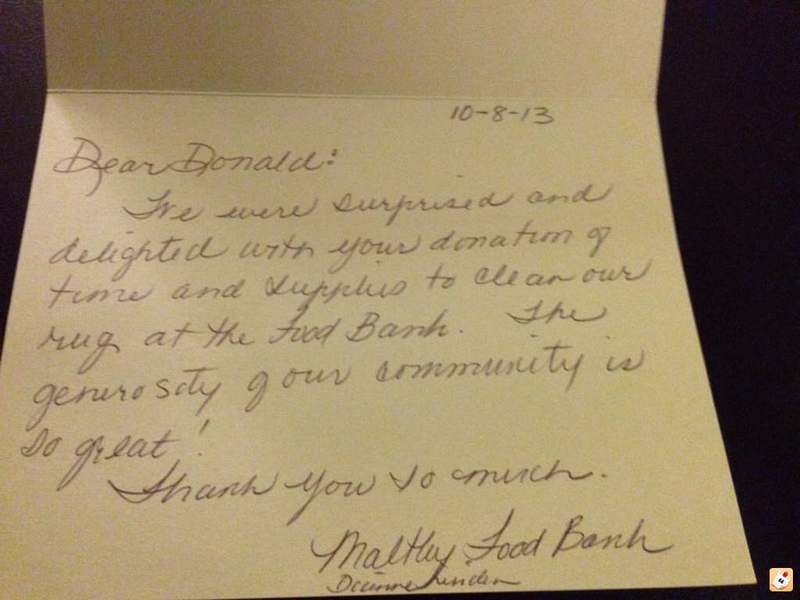 10-8-13
Dear Donald:
We were surprised and
delighted with your donation of
time and supplies to clean our
rug at the Food Bank. The
generosity of our community is
so great!
Thank you so much.
Maltby Food Bank